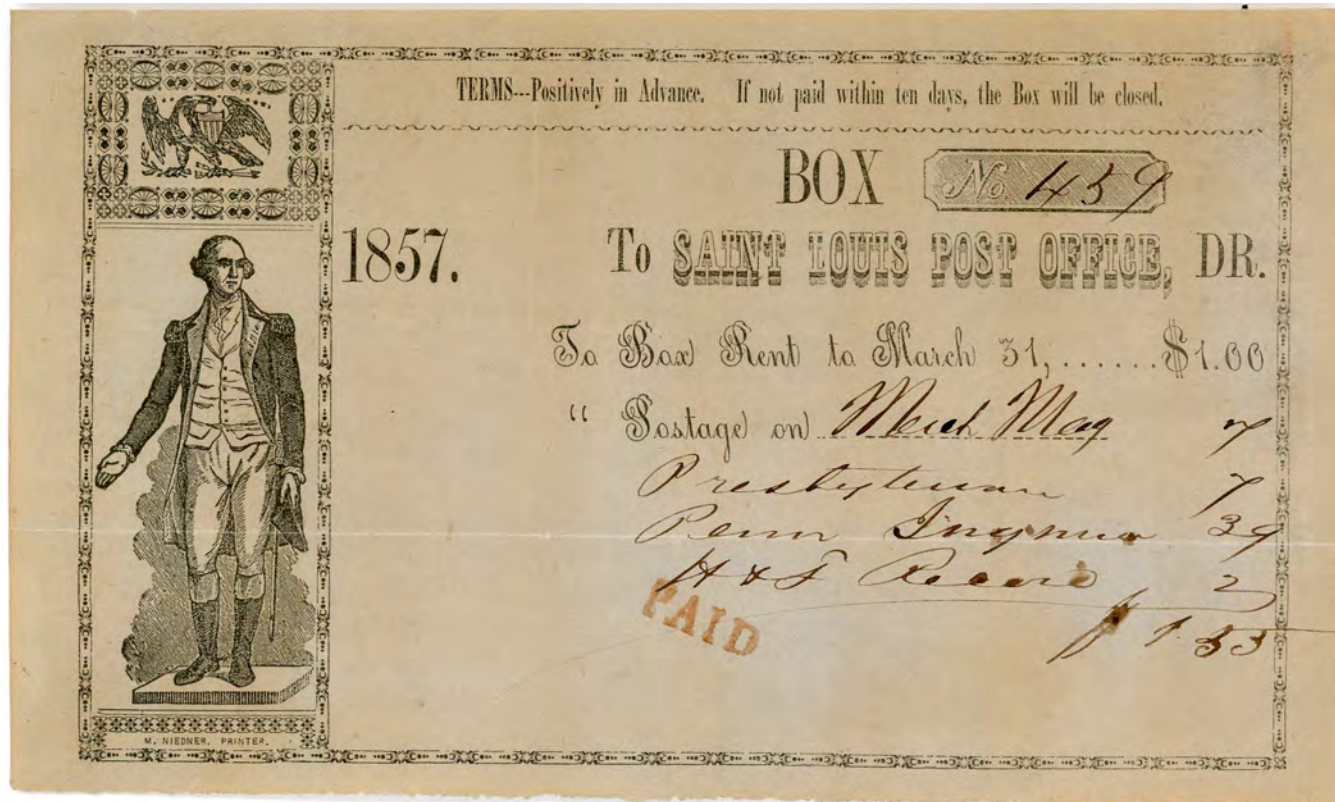 TERMS---Positively in Advance. If not paid within ten days, the Box will be closed.
BOX No. 459
1857. To SAINT LOUIS POST OFFICE, DR.
To Box Rent to March 31,......$1.00
“ Postage on Merch Mag 7
Presbyterian 7
Penn 39
H & F Record 2
$1.55
PAID
M. NIEDNER, PRINTER.